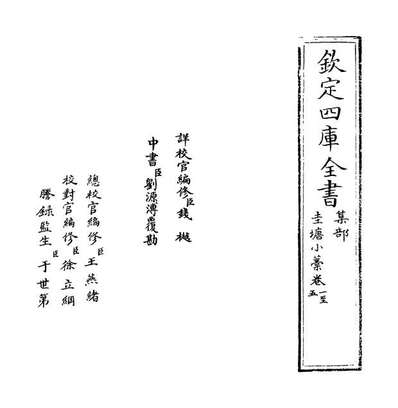 欽定四庫全書
集部
圭塘小藁卷一至五
詳校官編修臣錢樾
中書臣劉源溥覆勘
總校官編修臣王燕緒
校對官編修臣徐立綱
謄錄監生臣于世第